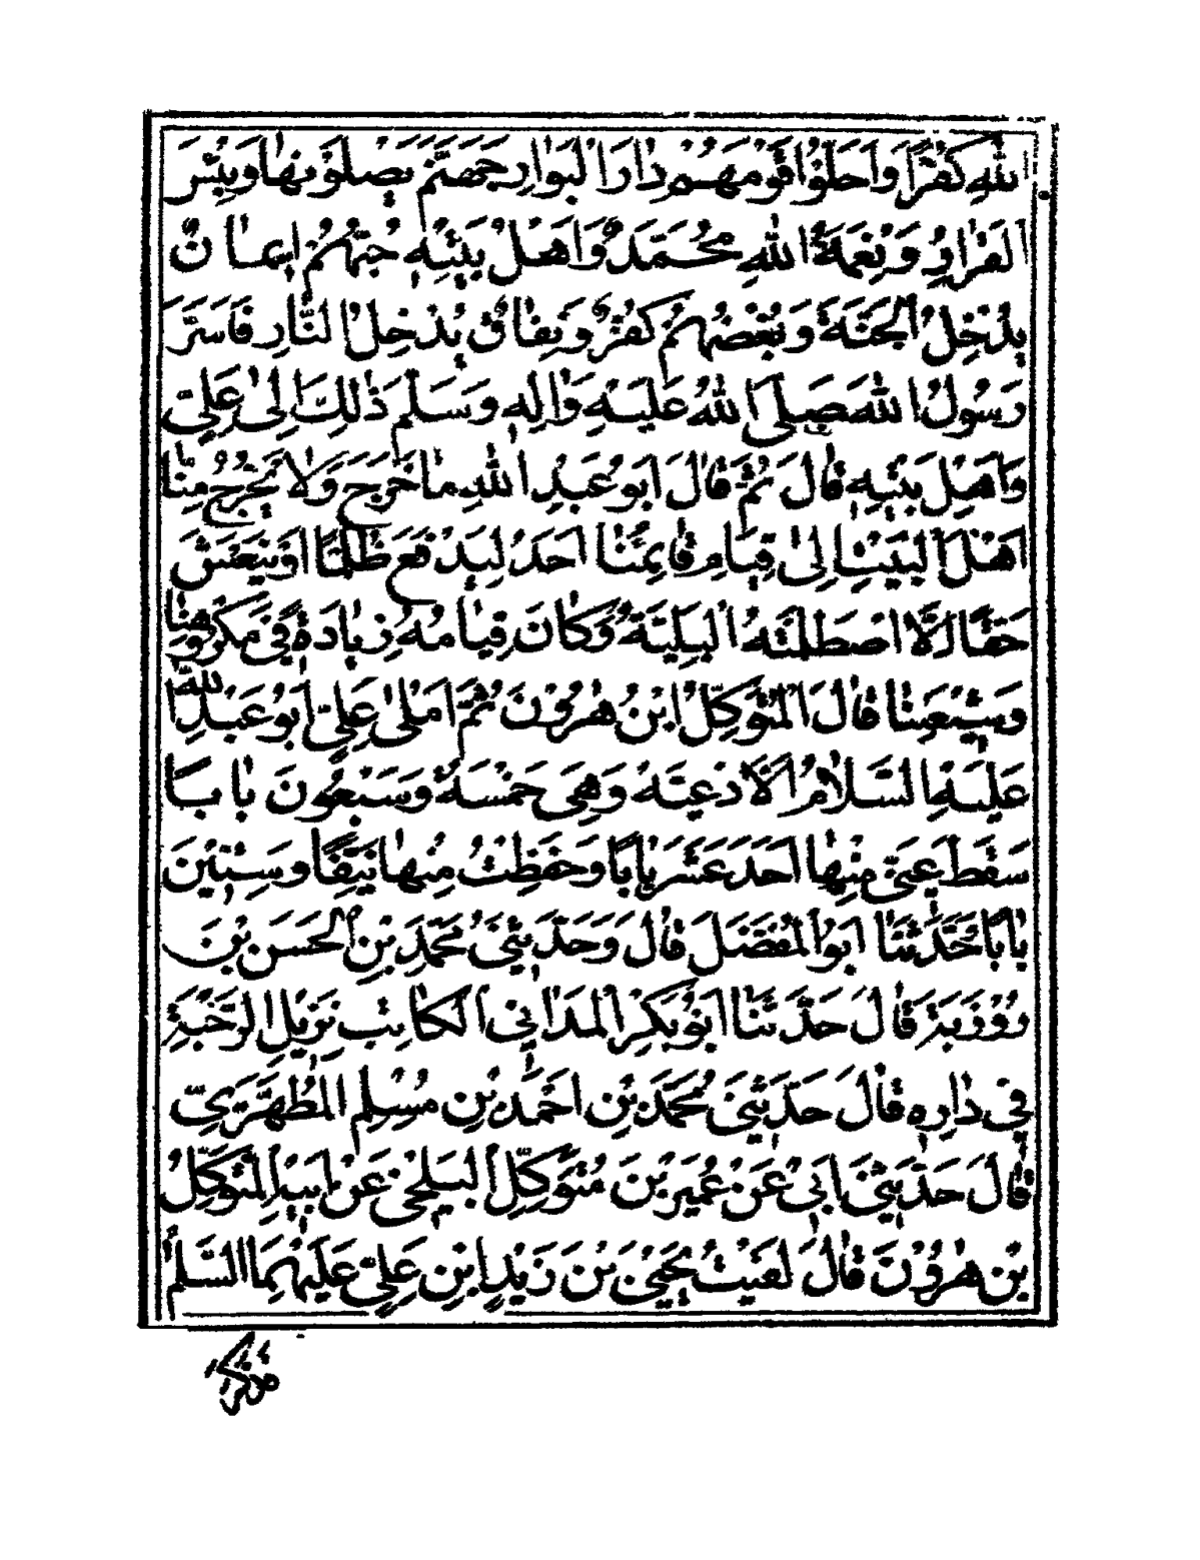 اللّٰهِ كُفْرًا وَاَحَلُّوْا قَوْمَهُمْ دَارَ الْبَوَارِ جَهَنَّمَ يَصْلَوْنَهَا وَبِئْسَ
الْقَرَارُ وَنِعْمَةُ اللّٰهِ مُحَمَّدٌ وَاَهْلُ بَيْتِهِ حُبُّهُمْ اِيمَانٌ
يُدْخِلُ الْجَنَّةَ وَبُغْضُهُمْ كُفْرٌ وَنِفَاقٌ يُدْخِلُ النَّارَ فَاَسَرَّ
رَسُولُ اللّٰهِ صَلَّى اللّٰهُ عَلَيْهِ وَاٰلِهِ وَسَلَّمَ ذٰلِكَ اِلٰى عَلِيٍّ
وَاَهْلِ بَيْتِهِ قَالَ ثُمَّ قَالَ اَبُو عَبْدِ اللّٰهِ مَا خَرَجَ وَلَا يَخْرُجُ مِنَّا
اَهْلَ الْبَيْتِ اِلٰى قِيَامِ قَائِمِنَا اَحَدٌ لِيَدْفَعَ ظُلْمًا اَوْ يَنْعَشَ
حَقًّا اِلَّا اصْطَلَمَتْهُ الْبَلِيَّةُ وَكَانَ قِيَامُهُ زِيَادَةً فِي مَكْرُوهِنَا
وَشِيْعَتِنَا قَالَ الْمُتَوَكِّلُ ابْنُ هٰرُوْنَ ثُمَّ اَمْلٰى عَلَيَّ اَبُو عَبْدِ اللّٰهِ
عَلَيْهِ السَّلَامُ الْاَدْعِيَةَ وَهِيَ خَمْسَةٌ وَسَبْعُونَ بَابًا
سَقَطَ عَنِّي مِنْهَا اَحَدَ عَشَرَ بَابًا وَحَفِظْتُ مِنْهَا نَيِّفًا وَسِتِّيْنَ
بَابًا حَدَّثَنَا اَبُو الْمُفَضَّلِ قَالَ وَحَدَّثَنِي مُحَمَّدِ بْنِ الْحَسَنِ بْنِ
رُوْزَبَةَ قَالَ حَدَّثَنَا اَبُوْ بَكْرٍ الْمَدَائِنِي الْكَاتِبُ نَزِيلُ الرَّحْبَةِ
فِي دَارِهِ قَالَ حَدَّثَنِي مُحَمَّدُ بْنُ اَحْمَدَ بْنِ مُسْلِمٍ الْمُطَهَّرِيِّ
قَالَ حَدَّثَنِي اَبِي عَنْ عُمَيْرِ بْنِ مُتَوَكِّلِ الْبَلْخِيِّ عَنْ اَبِيهِ الْمُتَوَكِّلِ
بْنِ هٰرُوْنَ قَالَ لَقِيتُ يَحْيَى بْنَ زَيْدِ ابْنِ عَلِيٍّ عَلَيْهِمَا السَّلَمُ